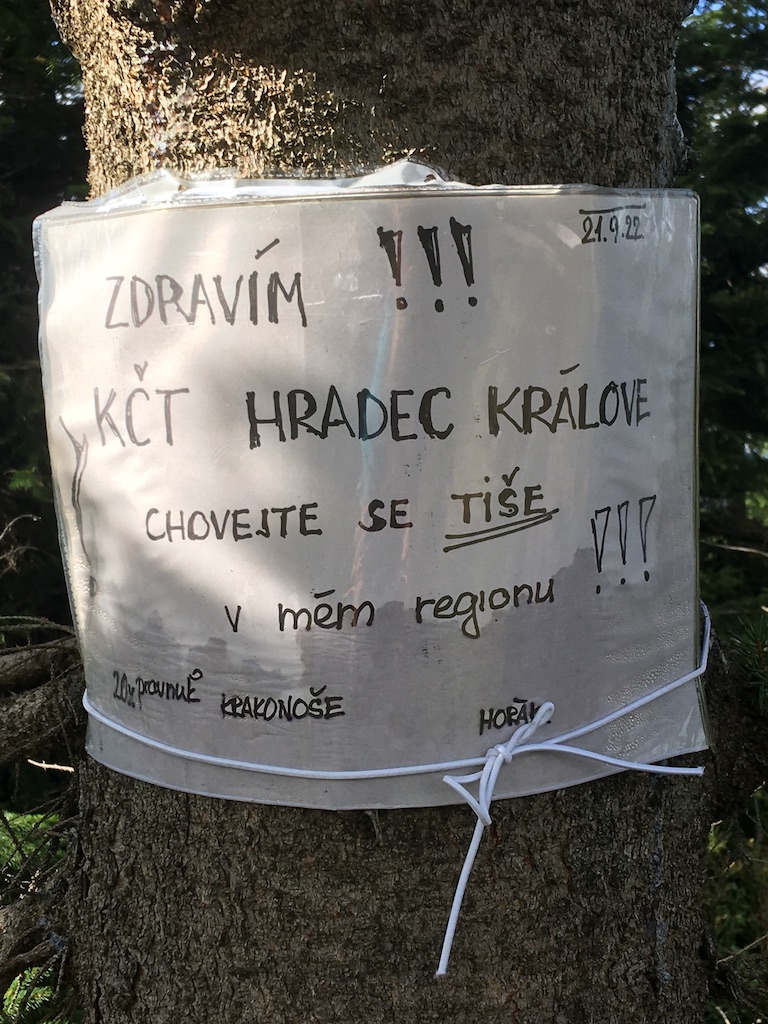 21.9.22
ZDRAVÍM !!!
KČT HRADEC KRÁLOVE
CHOVEJTE SE TIŠE !!!
v mém regionu
20x pravnuk KRAKONOŠE HORÁK.